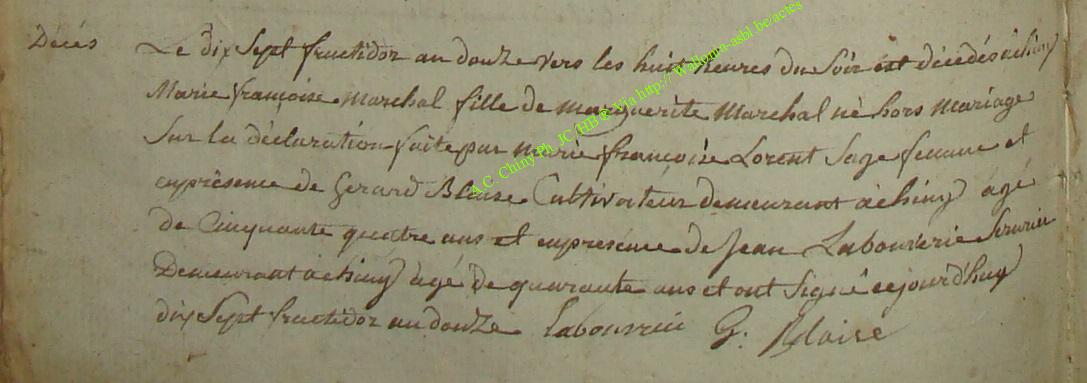 Décés
Le dix Sept fructidor an douze vers les huit heures du Soir est décédés àchiny
Marie françoise marchal fille de marguerite Marchal né hors mariage
Sur la déclaration faite par marie françoise Lorent Sage femme et
enprésence de Gerard Blaise Cultivateur demeurant àchiny agé
de Cinquante quatre ans et enprésence de Jean Labourerie Serurier
Demeurant àchiny agé de quarante ans et ont Signé cejourd'huy
dix Sept fructidor an douze labourrie G. Blaise
A.C. Chiny Ph. JC HB@ Via http://Wallonia-asbl.be/actes